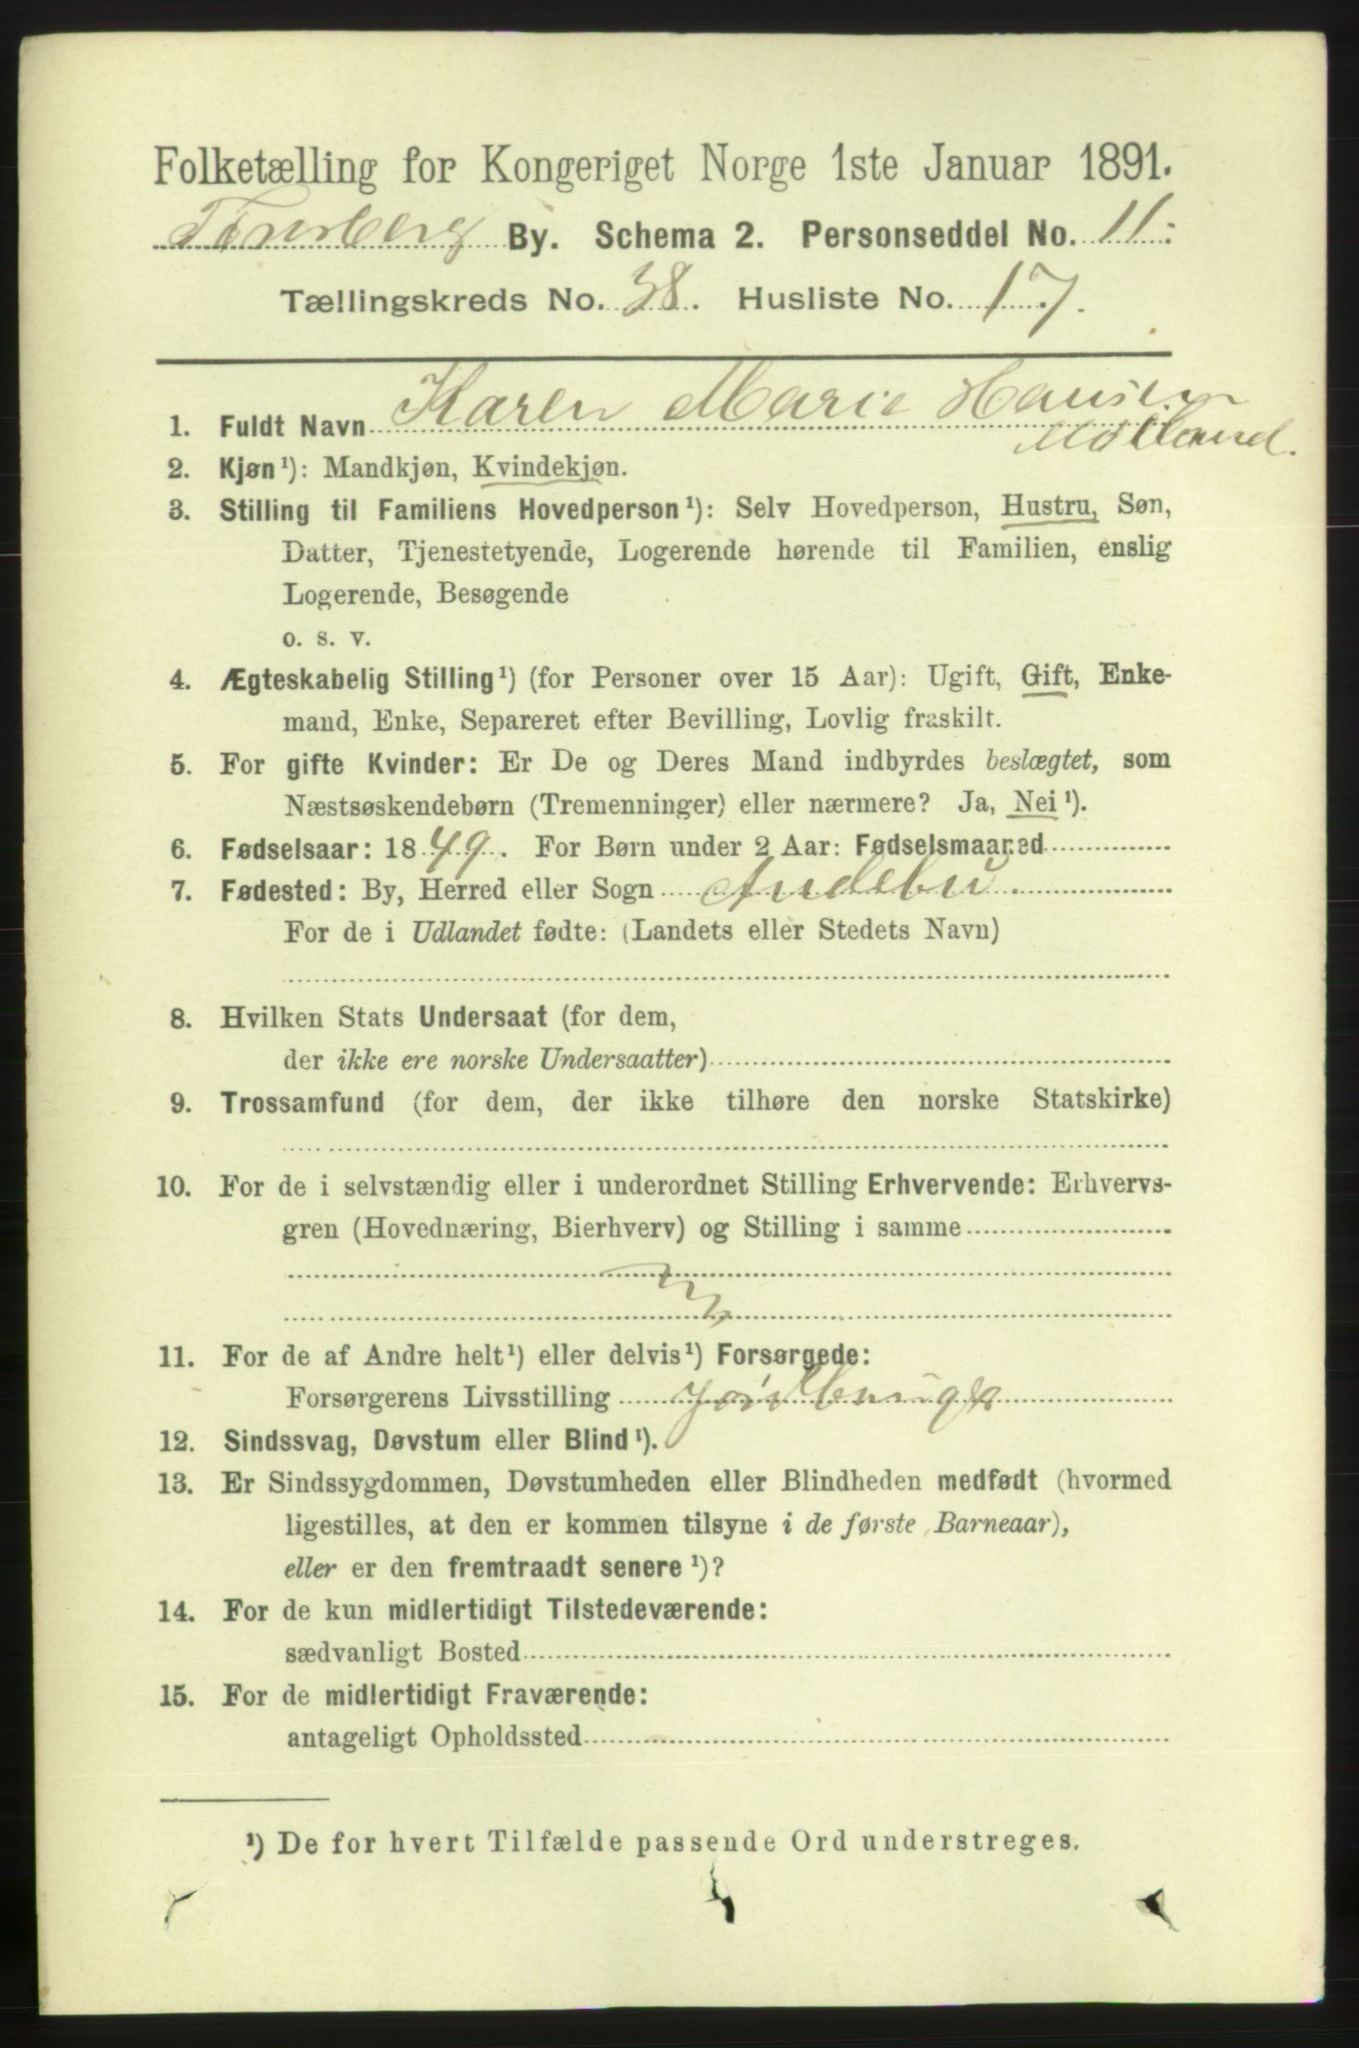 Folketælling for Kongeriget Norge 1ste Januar 1891.
Tønsberg By. Schema 2. Personseddel No. 11.
Tællingskreds No. 38. Husliste No. 17.
1. Fuldt Navn Karen Marie Hansen
2. Kjøn¹): Mandkjøn, Kvindekjøn.
3. Stilling til Familiens Hovedperson¹): Selv Hovedperson, Hustru, Søn,
Datter, Tjenestetyende, Logerende hørende til Familien, enslig
Logerende, Besøgende
o. s. v.
4. Ægteskabelig Stilling¹) (for Personer over 15 Aar): Ugift, Gift, Enke-
mand, Enke, Separeret efter Bevilling, Lovlig fraskilt.
5. For gifte Kvinder: Er De og Deres Mand indbyrdes beslægtet, som
Næstsøskendebørn (Tremenninger) eller nærmere? Ja, Nei¹).
6. Fødselsaar: 1849. For Børn under 2 Aar: Fødselsmaaned
7. Fødested: By, Herred eller Sogn Andebu.
For de i Udlandet fødte: (Landets eller Stedets Navn)
8. Hvilken Stats Undersaat (for dem,
der ikke ere norske Undersaatter)
9. Trossamfund (for dem, der ikke tilhøre den norske Statskirke)
10. For de i selvstændig eller i underordnet Stilling Erhvervende: Erhvervs-
gren (Hovednæring, Bierhverv) og Stilling i samme
11. For de af Andre helt¹) eller delvis¹) Forsørgede:
Forsørgerens Livsstilling
12. Sindssvag, Døvstum eller Blind¹).
13. Er Sindssygdommen, Døvstumheden eller Blindheden medfødt (hvormed
ligestilles, at den er kommen tilsyne i de første Barneaar),
eller er den fremtraadt senere¹)?
14. For de kun midlertidigt Tilstedeværende:
sædvanligt Bosted
15. For de midlertidigt Fraværende:
antageligt Opholdssted
¹) De for hvert Tilfælde passende Ord understreges.